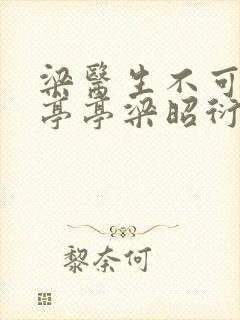 梁醫生不可
亭亭梁昭衍
黎奈何